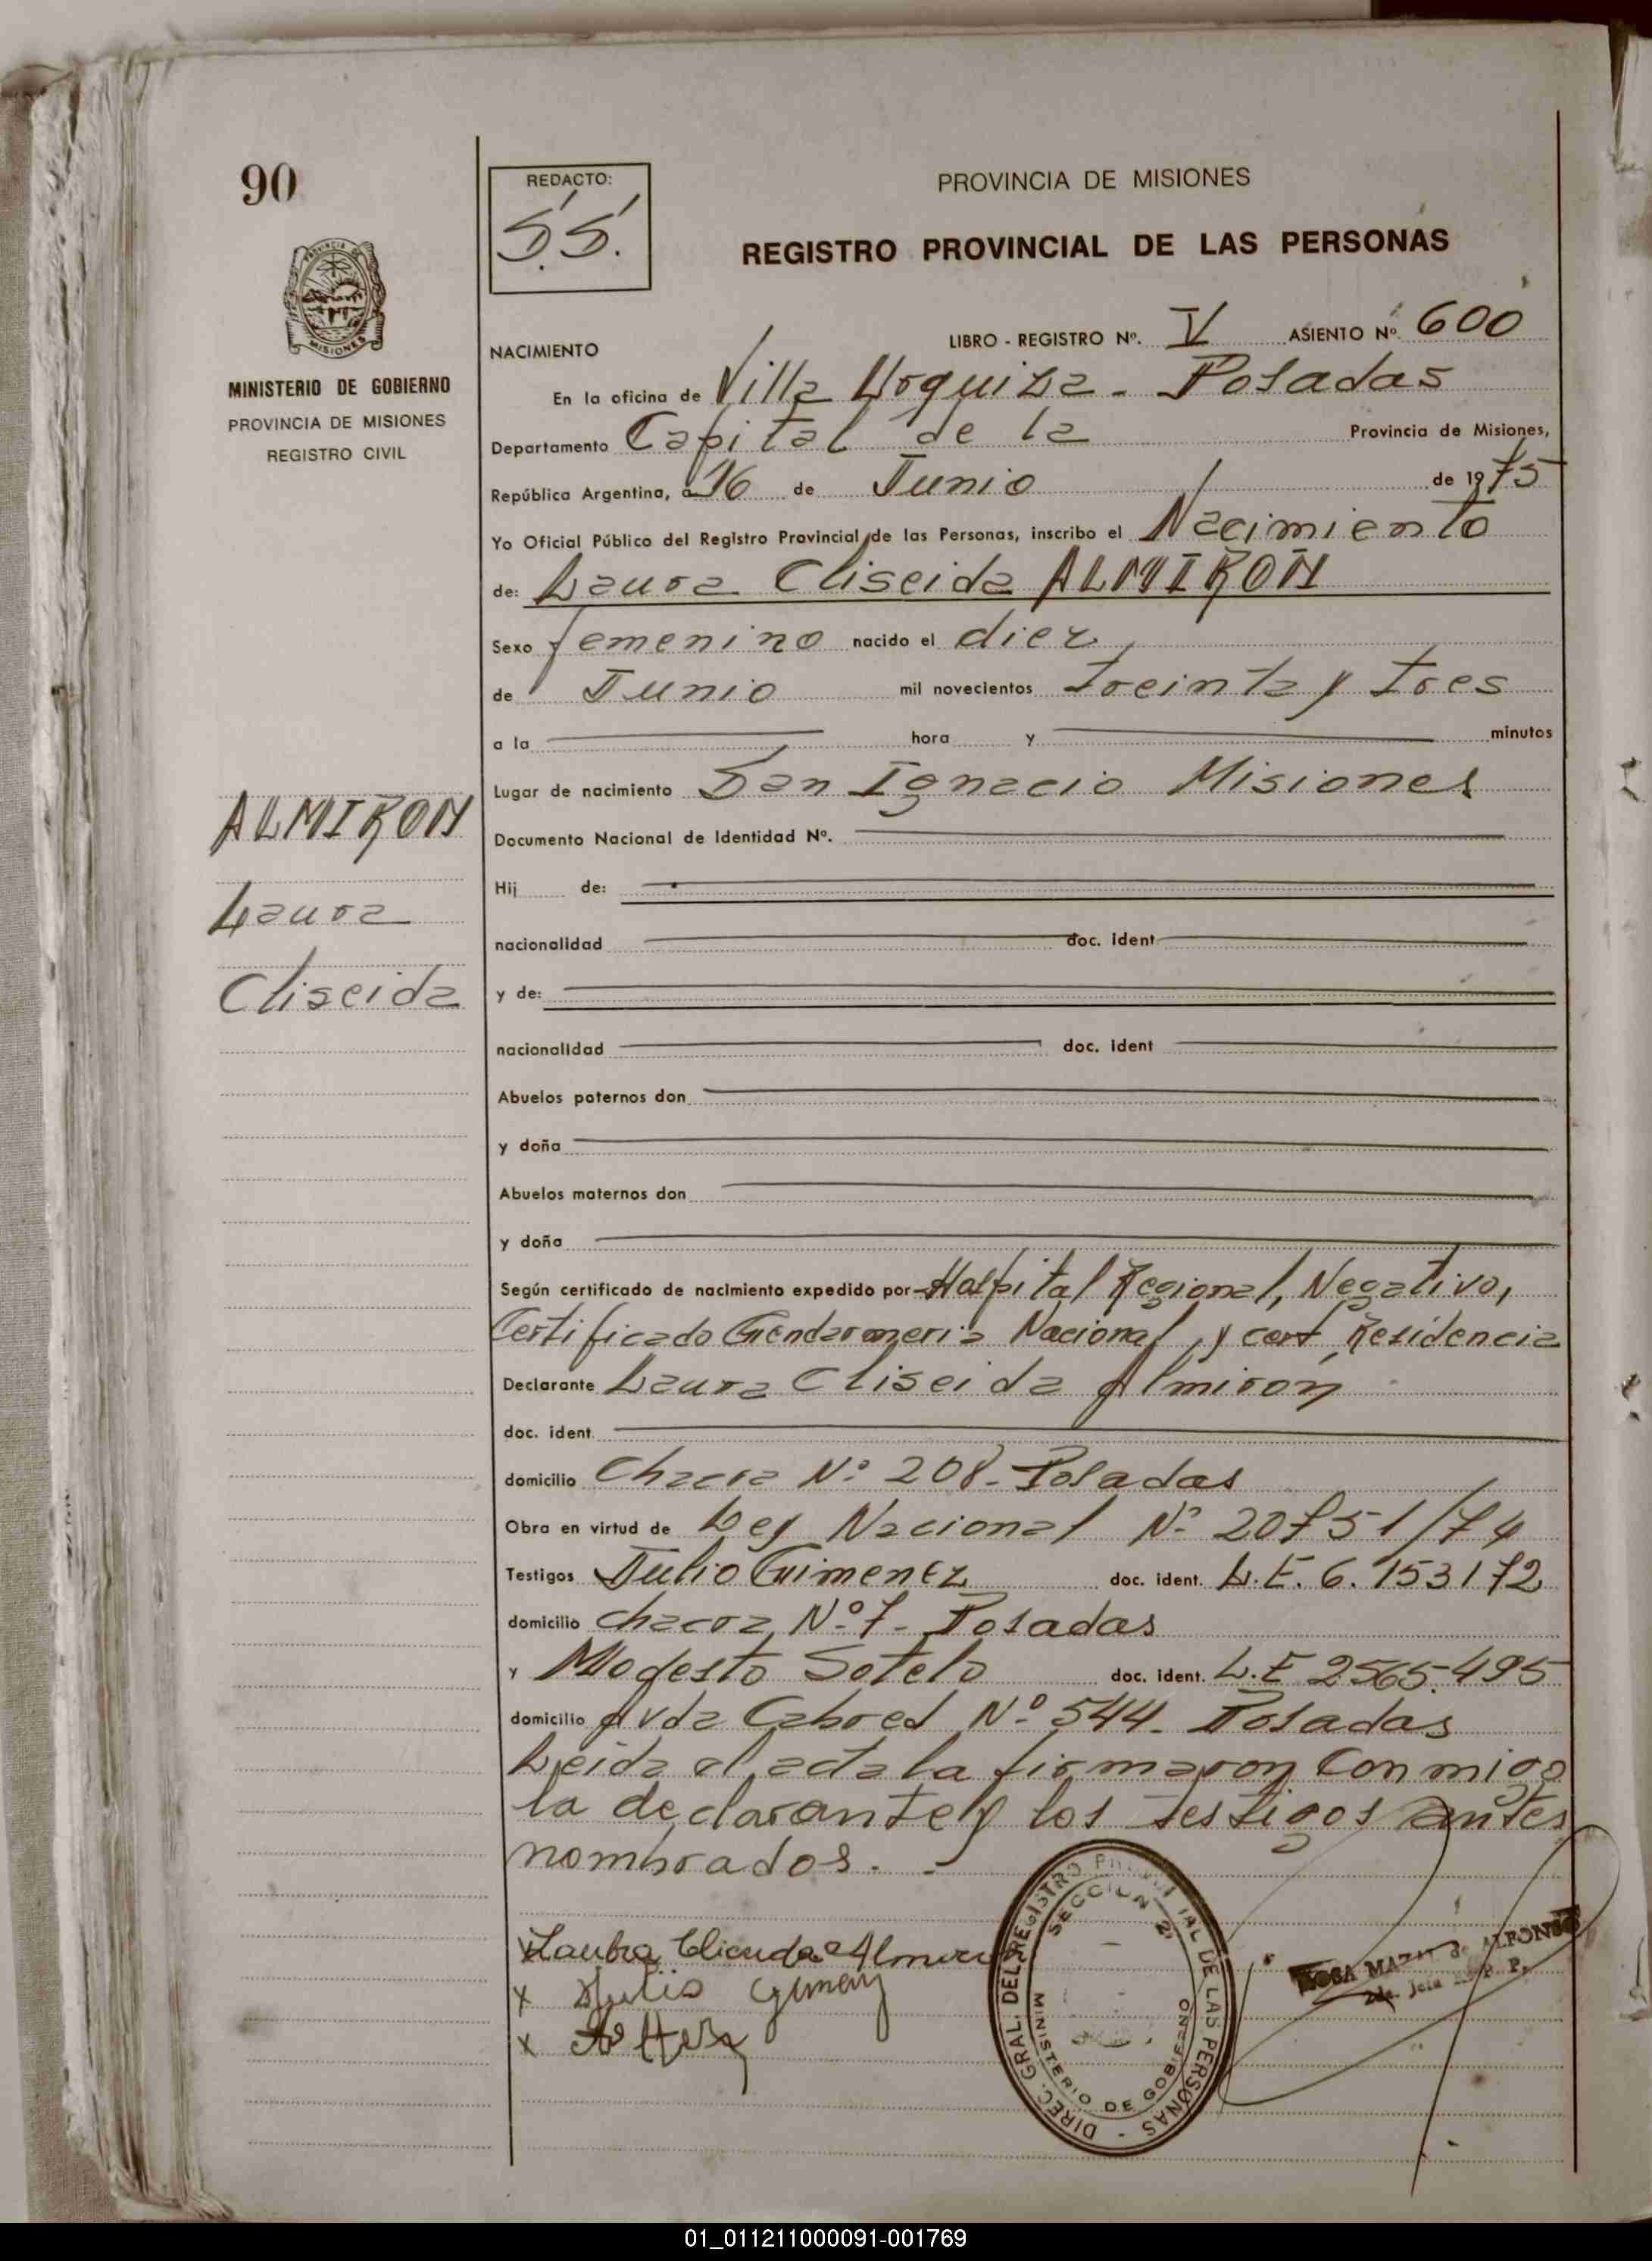 90
REDACTO:
S.S.
PROVINCIA DE MISIONES
REGISTRO PROVINCIAL DE LAS PERSONAS
PROVINCIA
MISIONES
MINISTERIO DE GOBIERNO
PROVINCIA DE MISIONES
REGISTRO CIVIL
NACIMIENTO LIBRO - REGISTRO Nº. V ASIENTO Nº. 600
En la oficina de Villa Urquiza - Posadas
Departamento Capital de la Provincia de Misiones,
República Argentina, a 16 de Junio de 1975
Yo Oficial Público del Registro Provincial de las Personas, inscribo el Nacimiento
de: Laura Cliseida ALMIRÓN
Sexo femenino nacido el diez
de Junio mil novecientos treinta y tres
a la hora y minutos
Lugar de nacimiento San Ignacio Misiones
Documento Nacional de Identidad Nº.
Hij de:
nacionalidad doc. ident
y de:
nacionalidad doc. ident
Abuelos paternos don
y doña
Abuelos maternos don
y doña
ALMIRON
Laura
Cliseida
Según certificado de nacimiento expedido por Hospital Regional, Negativo,
Certificado Gendarmeria Nacional y cert Residencia
Declarante Laura Cliseida Almirón
doc. ident
domicilio Chacra Nº 208 - Posadas
Obra en virtud de Ley Nacional Nº 20751/74
Testigos Julio Gimenez doc. ident. L.E. 6.153172
domicilio chacra Nº 7 - Posadas
y Modesto Sotelo doc. ident. L.E 2565.495
domicilio Avda Cabred Nº 544 - Posadas
Leida el acta la firmaron conmigo
la declarante y los testigos antes
nombrados. -
x Julio
x
DIREC. GRAL. DEL REGISTRO PROVINCIAL DE LAS PERSONAS -
SECCION 2ª
MINISTERIO DE GOBIERNO
ROSA de ALFONSO
2da. Jefa R. P. P.
01_011211000091-001769